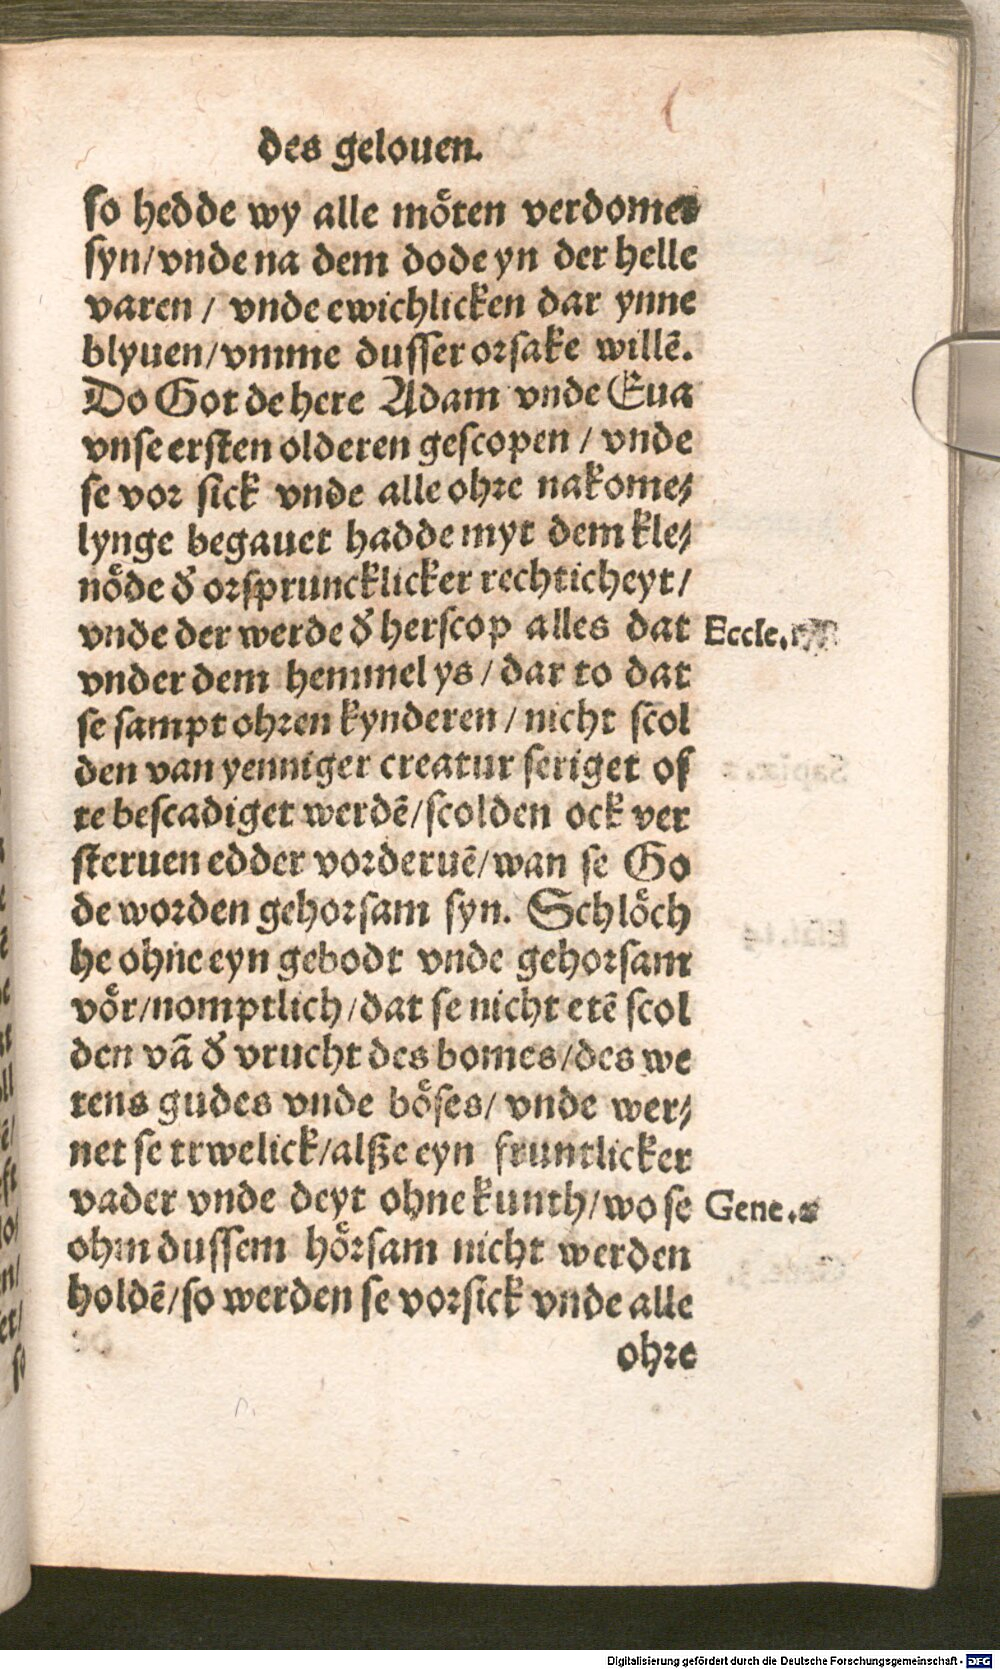 des gelouen.
so hedde wy alle moͤten verdomet
syn/vnde na dem dode yn der helle
varen / vnde ewichlicken dar ynne
blyuen/vmme dusser orsake willē.
Do Got de here Adam vnde Eua
vnse ersten olderen gescopen / vnde
se vor sick vnde alle ohre nakome⸗
lynge begauet hadde myt dem kle⸗
noͤde dͤ orspruncklicker rechticheyt/
vnde der werde dͤ herscop alles dat
Eccle.
vnder dem hemmel ys / dar to dat
se sampt ohren kynderen / nicht scol
den van yenniger creatur seriget of
te bescadiget werdē/scolden ock ver
steruen edder vorderuē/wan se Go
de worden gehorsam syn. Schloͤch
he ohne eyn gebodt vnde gehorsam
voͤr/nomptlich/dat se nicht etē scol
den vā dͤ vrucht des bomes/des we
tens gudes vnde boͤses/ vnde wer⸗
net se trwelick/alsze eyn fruntlicker
vader vnde deyt ohne kunth/wo se
Gene.
ohm dussem hoͤrsam nicht werden
holdē/so werden se vor sick vnde alle
ohre
Digitalisierung gefördert durch die Deutsche Forschungsgemeinschaft - DFG